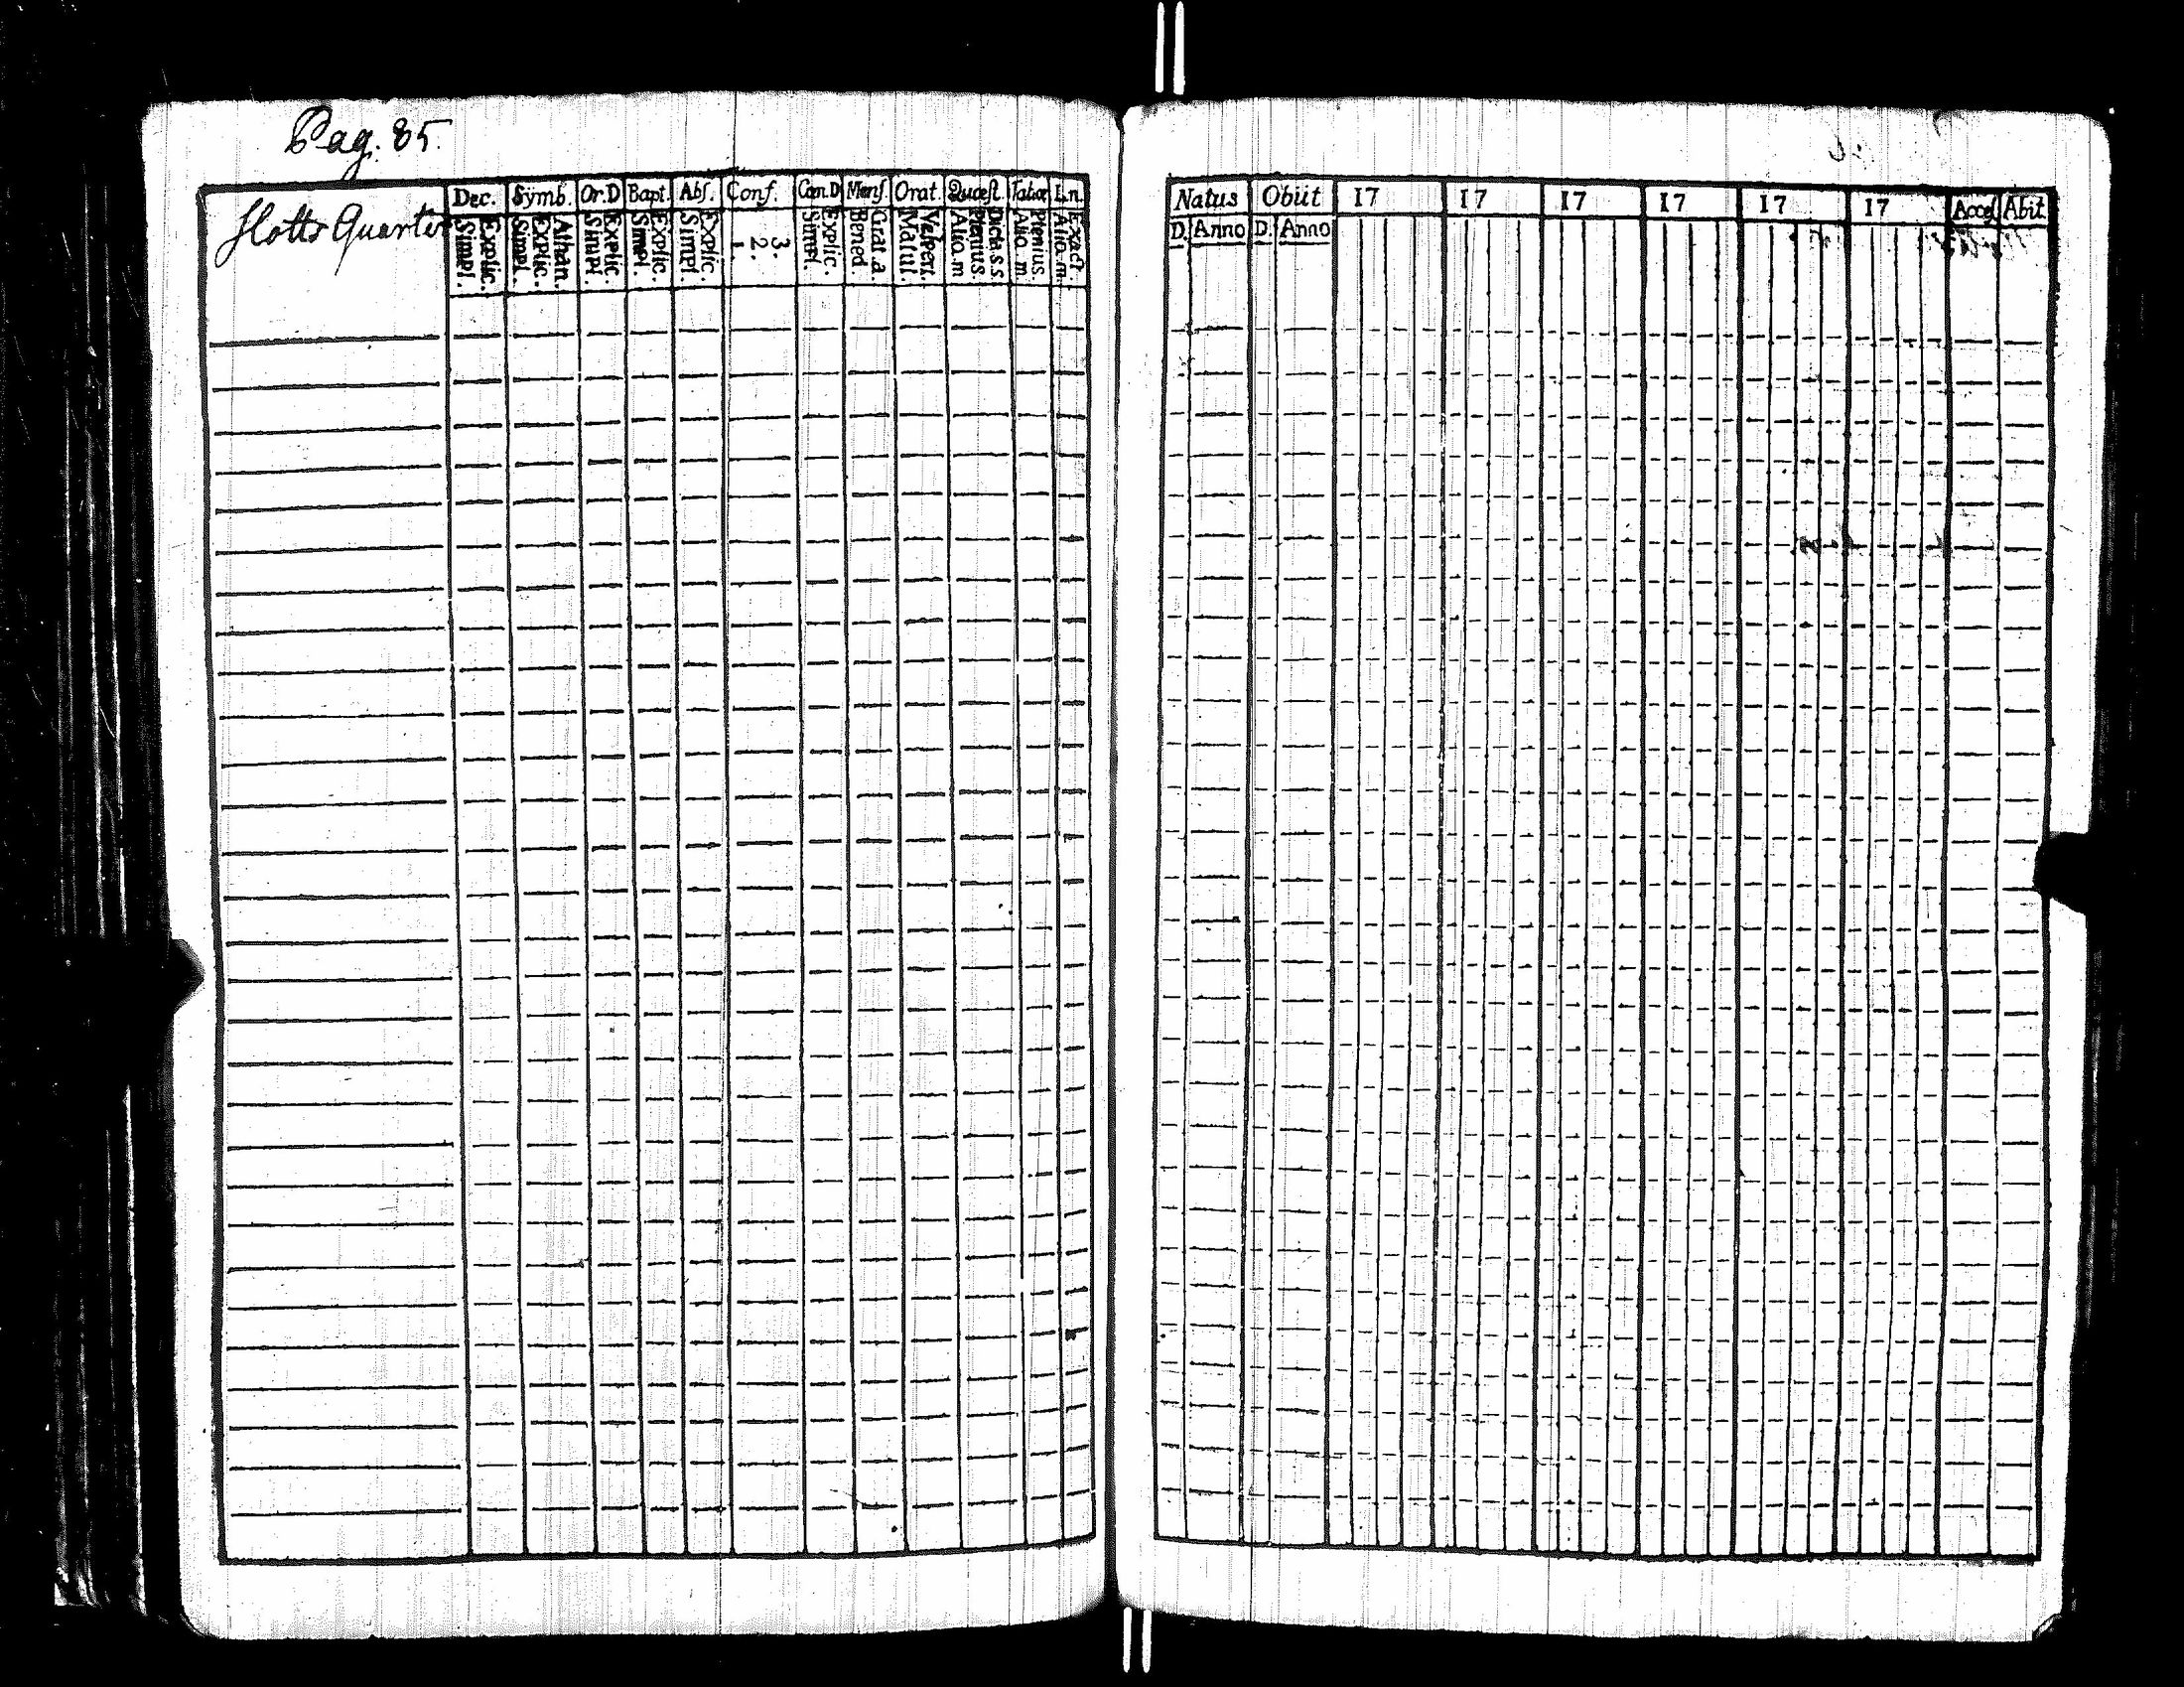 Pag. 85.
Dec. Symb. Or.D Bapt. Abs. Conf. Cœn.D Mens. Orat. Quæst. Tabœ L.n.
Slotts Quarter
Simpl. Explic. Simpl. Explic. Athan. Simpl. Explic. Simpl. Explic. Simpl. Explic. 1. 2. 3. Simpl. Explic. Bened. Grat.a. Matut. Vespert. Alio.m Plenius. Dicta.s.s. Alio.m. Plenius. Alio.m. Exact.
Natus Obiit 17 17 17 17 17 17 Acces Abit
D. Anno D. Anno